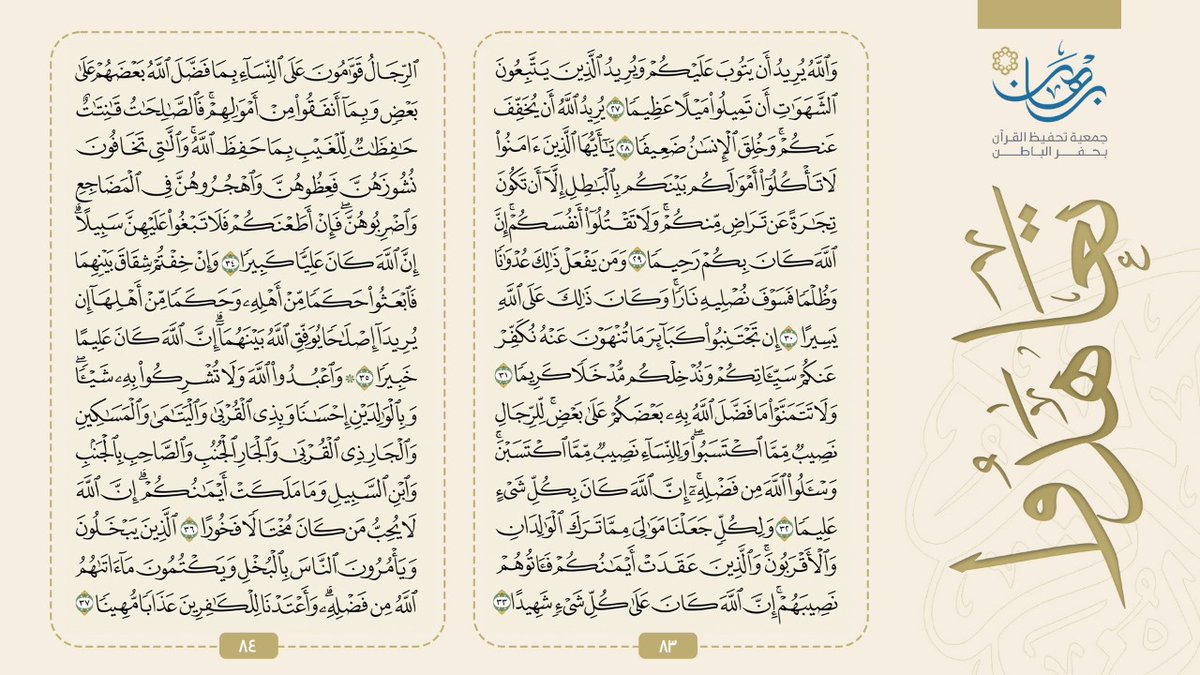 برهان
جمعية تحفيظ القرآن
بحفر الباطن
تعاهدوا
وَٱللَّهُ يُرِيدُ أَن يَتُوبَ عَلَيْكُمْ وَيُرِيدُ ٱلَّذِينَ يَتَّبِعُونَ
ٱلشَّهَوَٰتِ أَن تَمِيلُوا۟ مَيْلًا عَظِيمًا ٢٧ يُرِيدُ ٱللَّهُ أَن يُخَفِّفَ
عَنكُمْ ۚ وَخُلِقَ ٱلْإِنسَٰنُ ضَعِيفًا ٢٨ يَٰٓأَيُّهَا ٱلَّذِينَ ءَامَنُوا۟
لَا تَأْكُلُوٓا۟ أَمْوَٰلَكُم بَيْنَكُم بِٱلْبَٰطِلِ إِلَّآ أَن تَكُونَ
تِجَٰرَةً عَن تَرَاضٍ مِّنكُمْ ۚ وَلَا تَقْتُلُوٓا۟ أَنفُسَكُمْ ۚ إِنَّ
ٱللَّهَ كَانَ بِكُمْ رَحِيمًا ٢٩ وَمَن يَفْعَلْ ذَٰلِكَ عُدْوَٰنًا
وَظُلْمًا فَسَوْفَ نُصْلِيهِ نَارًا ۚ وَكَانَ ذَٰلِكَ عَلَى ٱللَّهِ
يَسِيرًا ٣٠ إِن تَجْتَنِبُوا۟ كَبَآئِرَ مَا تُنْهَوْنَ عَنْهُ نُكَفِّرْ
عَنكُمْ سَيِّـَٔاتِكُمْ وَنُدْخِلْكُم مُّدْخَلًا كَرِيمًا ٣١
وَلَا تَتَمَنَّوْا۟ مَا فَضَّلَ ٱللَّهُ بِهِۦ بَعْضَكُمْ عَلَىٰ بَعْضٍ ۚ لِّلرِّجَالِ
نَصِيبٌ مِّمَّا ٱكْتَسَبُوا۟ ۖ وَلِلنِّسَآءِ نَصِيبٌ مِّمَّا ٱكْتَسَبْنَ ۚ
وَسْـَٔلُوا۟ ٱللَّهَ مِن فَضْلِهِۦٓ ۗ إِنَّ ٱللَّهَ كَانَ بِكُلِّ شَىْءٍ
عَلِيمًا ٣٢ وَلِكُلٍّ جَعَلْنَا مَوَٰلِىَ مِمَّا تَرَكَ ٱلْوَٰلِدَانِ
وَٱلْأَقْرَبُونَ ۚ وَٱلَّذِينَ عَقَدَتْ أَيْمَٰنُكُمْ فَـَٔاتُوهُمْ
نَصِيبَهُمْ ۚ إِنَّ ٱللَّهَ كَانَ عَلَىٰ كُلِّ شَىْءٍ شَهِيدًا ٣٣
٨٣
ٱلرِّجَالُ قَوَّٰمُونَ عَلَى ٱلنِّسَآءِ بِمَا فَضَّلَ ٱللَّهُ بَعْضَهُمْ عَلَىٰ
بَعْضٍ وَبِمَآ أَنفَقُوا۟ مِنْ أَمْوَٰلِهِمْ ۚ فَٱلصَّٰلِحَٰتُ قَٰنِتَٰتٌ
حَٰفِظَٰتٌ لِّلْغَيْبِ بِمَا حَفِظَ ٱللَّهُ ۚ وَٱلَّٰتِى تَخَافُونَ
نُشُوزَهُنَّ فَعِظُوهُنَّ وَٱهْجُرُوهُنَّ فِى ٱلْمَضَاجِعِ
وَٱضْرِبُوهُنَّ ۖ فَإِنْ أَطَعْنَكُمْ فَلَا تَبْغُوا۟ عَلَيْهِنَّ سَبِيلًا ۗ
إِنَّ ٱللَّهَ كَانَ عَلِيًّا كَبِيرًا ٣٤ وَإِنْ خِفْتُمْ شِقَاقَ بَيْنِهِمَا
فَٱبْعَثُوا۟ حَكَمًا مِّنْ أَهْلِهِۦ وَحَكَمًا مِّنْ أَهْلِهَآ إِن
يُرِيدَآ إِصْلَٰحًا يُوَفِّقِ ٱللَّهُ بَيْنَهُمَآ ۗ إِنَّ ٱللَّهَ كَانَ عَلِيمًا
خَبِيرًا ٣٥ ۞ وَٱعْبُدُوا۟ ٱللَّهَ وَلَا تُشْرِكُوا۟ بِهِۦ شَيْـًٔا ۖ
وَبِٱلْوَٰلِدَيْنِ إِحْسَٰنًا وَبِذِى ٱلْقُرْبَىٰ وَٱلْيَتَٰمَىٰ وَٱلْمَسَٰكِينِ
وَٱلْجَارِ ذِى ٱلْقُرْبَىٰ وَٱلْجَارِ ٱلْجُنُبِ وَٱلصَّاحِبِ بِٱلْجَنۢبِ
وَٱبْنِ ٱلسَّبِيلِ وَمَا مَلَكَتْ أَيْمَٰنُكُمْ ۗ إِنَّ ٱللَّهَ
لَا يُحِبُّ مَن كَانَ مُخْتَالًا فَخُورًا ٣٦ ٱلَّذِينَ يَبْخَلُونَ
وَيَأْمُرُونَ ٱلنَّاسَ بِٱلْبُخْلِ وَيَكْتُمُونَ مَآ ءَاتَىٰهُمُ
ٱللَّهُ مِن فَضْلِهِۦ ۗ وَأَعْتَدْنَا لِلْكَٰفِرِينَ عَذَابًا مُّهِينًا ٣٧
٨٤